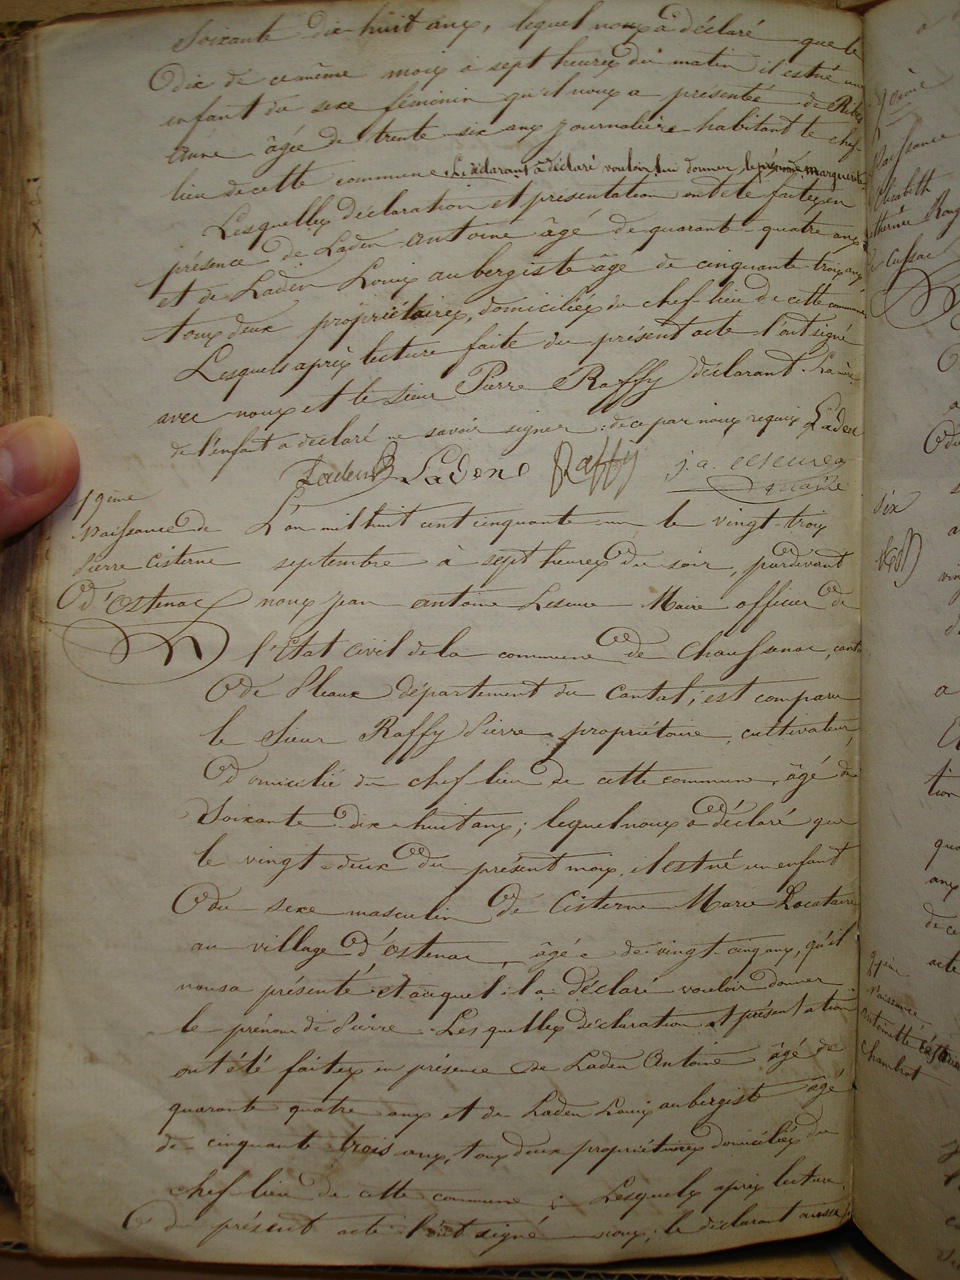 Soixante dix huit ans, lequel nous a déclaré que le
dix de ce même mois à sept heures du matin il est né un
enfant du sexe féminin qu'il nous a présenté de Ribes
anne âgée de trente six ans journalière habitant le chef
lieu de cette commune. Le déclarant a déclaré vouloir lui donner le prénom marguerite
Lesquelles déclaration et présentation ont été faites en
présence de Laden antoine âgé de quarante quatre ans
et de Laden Louis aubergiste âgé de cinquante trois ans
tous deux propriétaires, domiciliés du chef lieu de cette commune
Lesquels après lecture faite du présent acte l'ont signé
avec nous et le sieur Pierre Raffy déclarant. La mère
de l'enfant a déclaré ne savoir signer de ce par nous requis Laden
Laden Ladene Raffy j. a. Leseure
maire
19ème
Naissance de
Pierre Cisterne
d'Ostenac
L'an mil huit cent cinquante un le vingt trois
septembre à sept heures du soir, pardevant
nous jean antoine Leseure Maire officier de
l'Etat civil de la commune de Chaussenac, cant
de Pleaux département du Cantal, est comparu
le sieur Raffy Pierre propriétaire, cultivateur,
domicilié du chef lieu de cette commune, âgé de
Soixante dix huit ans; lequel nous a déclaré que
le vingt deux du présent mois, il est né un enfant
du sexe masculin de Cisterne Marie Locataire
au village d'Ostenac, âgée de vingt cinq ans, qu'il
nous a présenté et auquel il a déclaré vouloir donner
le prénom de Pierre. Lesquelles déclaration et présentation
ont été faites en présence de Laden Antoine âgé de
quarante quatre ans et de Laden Louis aubergiste âgé
de cinquante trois ans, tous deux propriétaires domiciliés du
chef lieu de cette commune; Lesquels après lecture
du présent acte l'ont signé nous; le déclarant aussi
Naissance
Elisabeth
de Cussac
dix
Naissance
antoinette
chambot